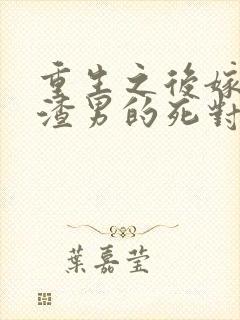 重生之後嫁
渣男的死對
葉嘉莹